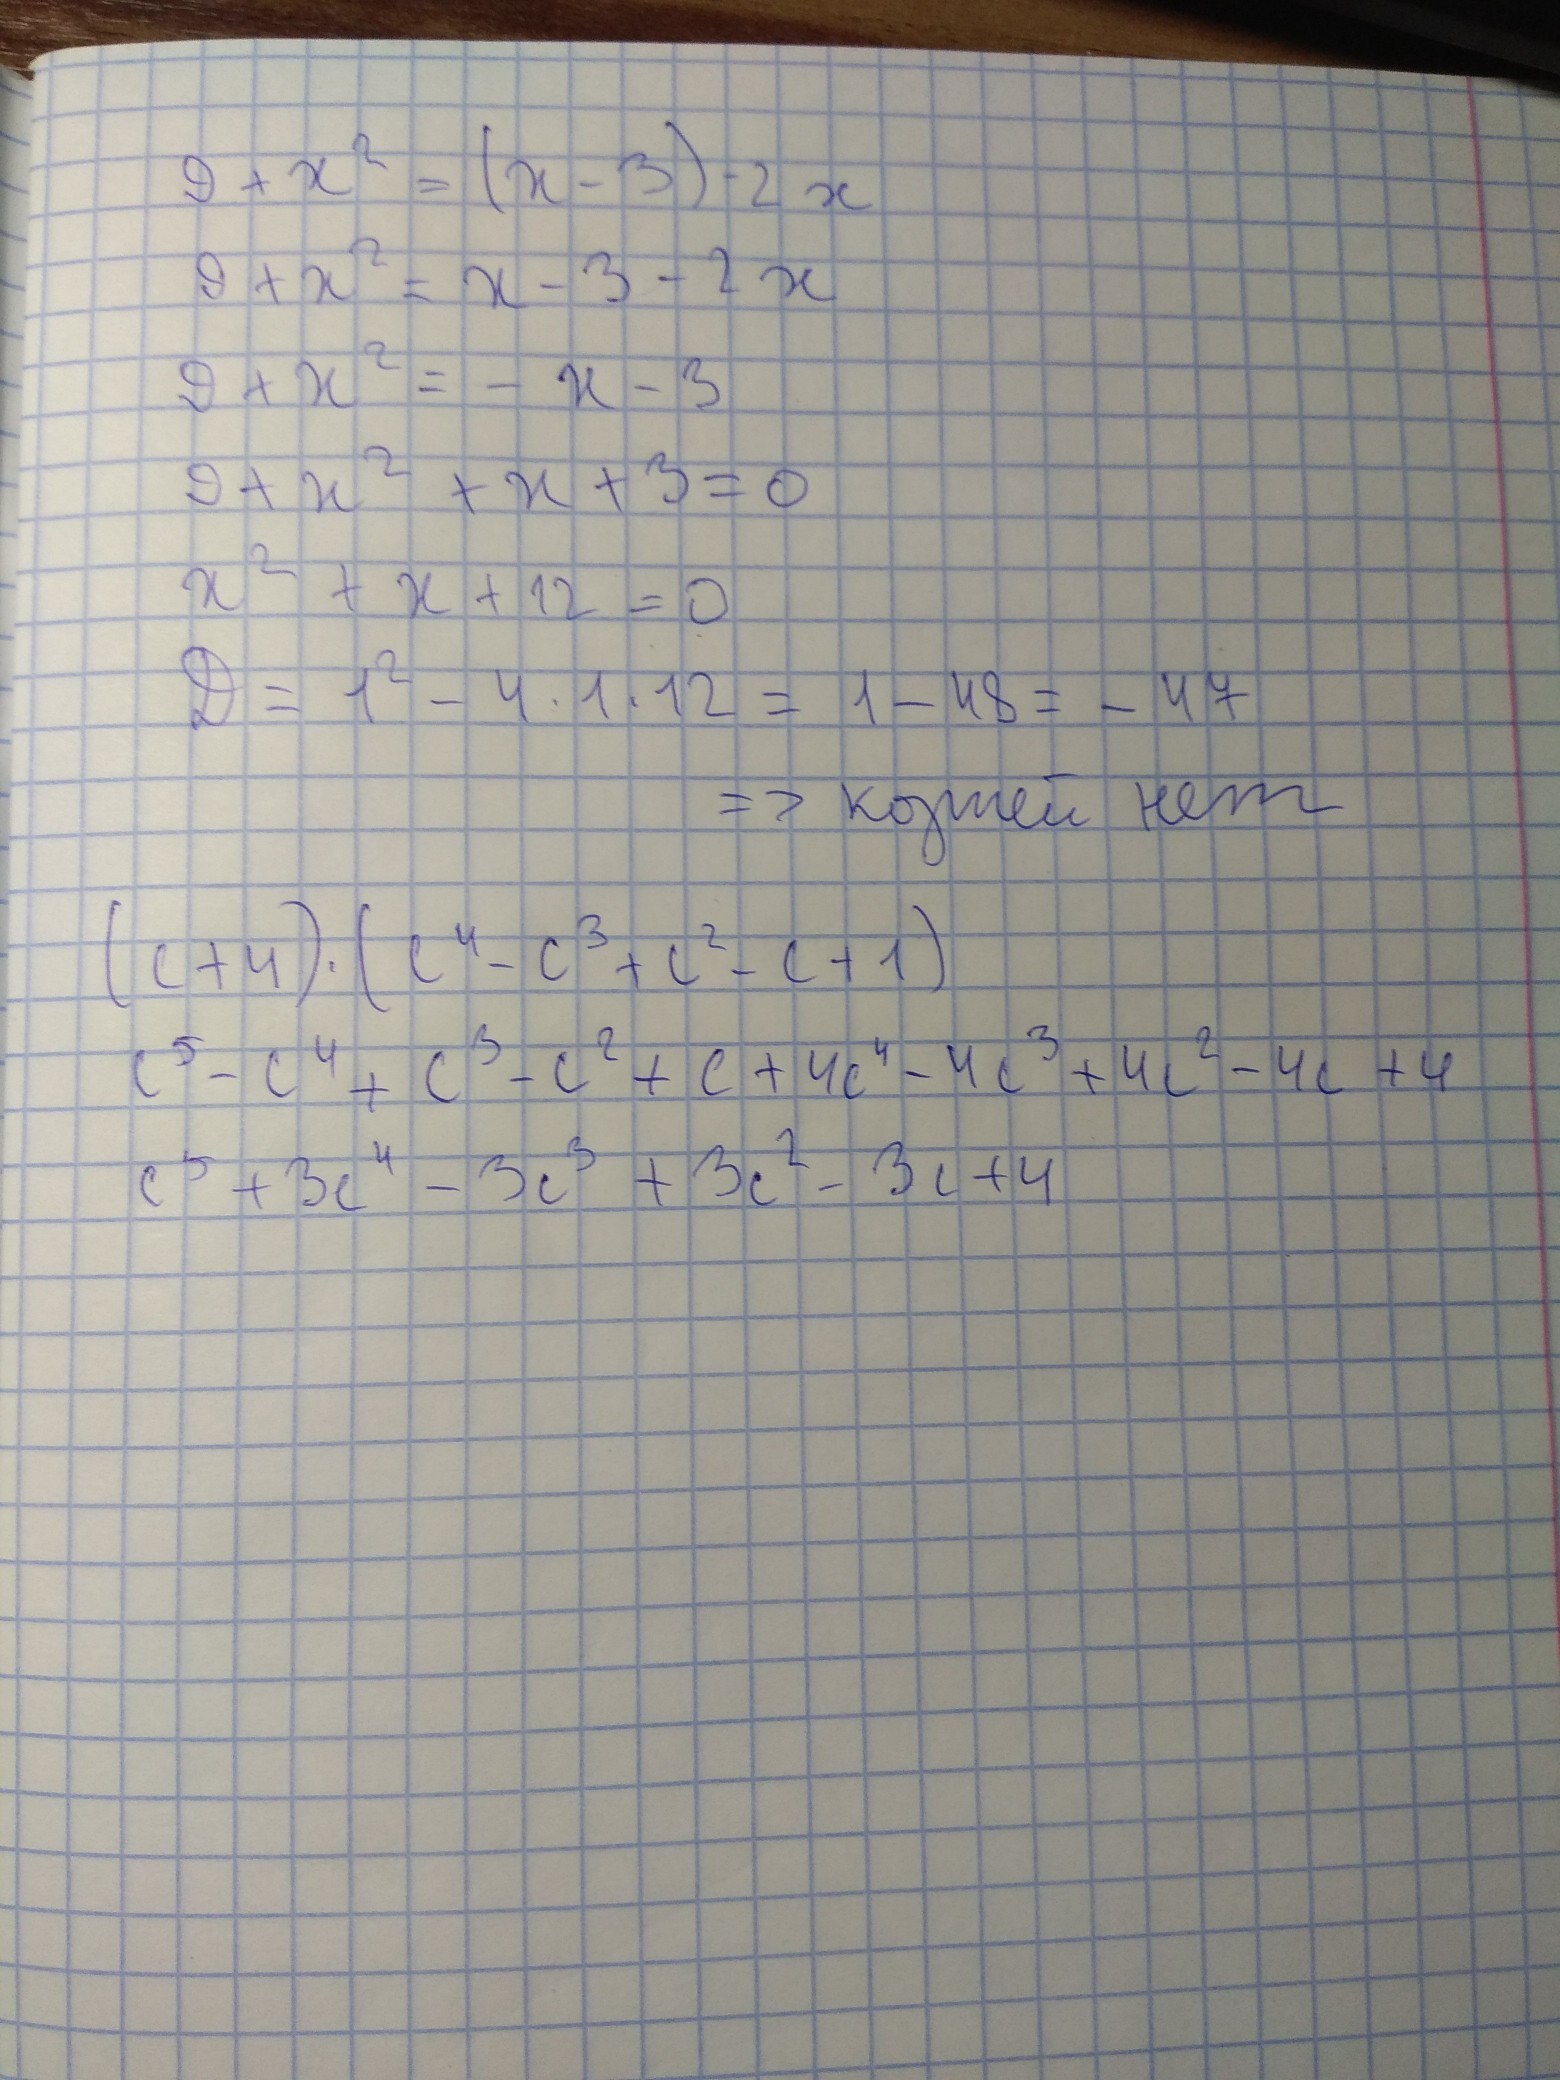 9 + x² = (x - 3) - 2x
9 + x² = x - 3 - 2x
9 + x² = - x - 3
9 + x² + x + 3 = 0
x² + x + 12 = 0
D = 1² - 4 · 1 · 12 = 1 - 48 = - 47
=> корней нет
(c + 4) · (c⁴ - c³ + c² - c + 1)
c⁵ - c⁴ + c³ - c² + c + 4c⁴ - 4c³ + 4c² - 4c + 4
c⁵ + 3c⁴ - 3c³ + 3c² - 3c + 4